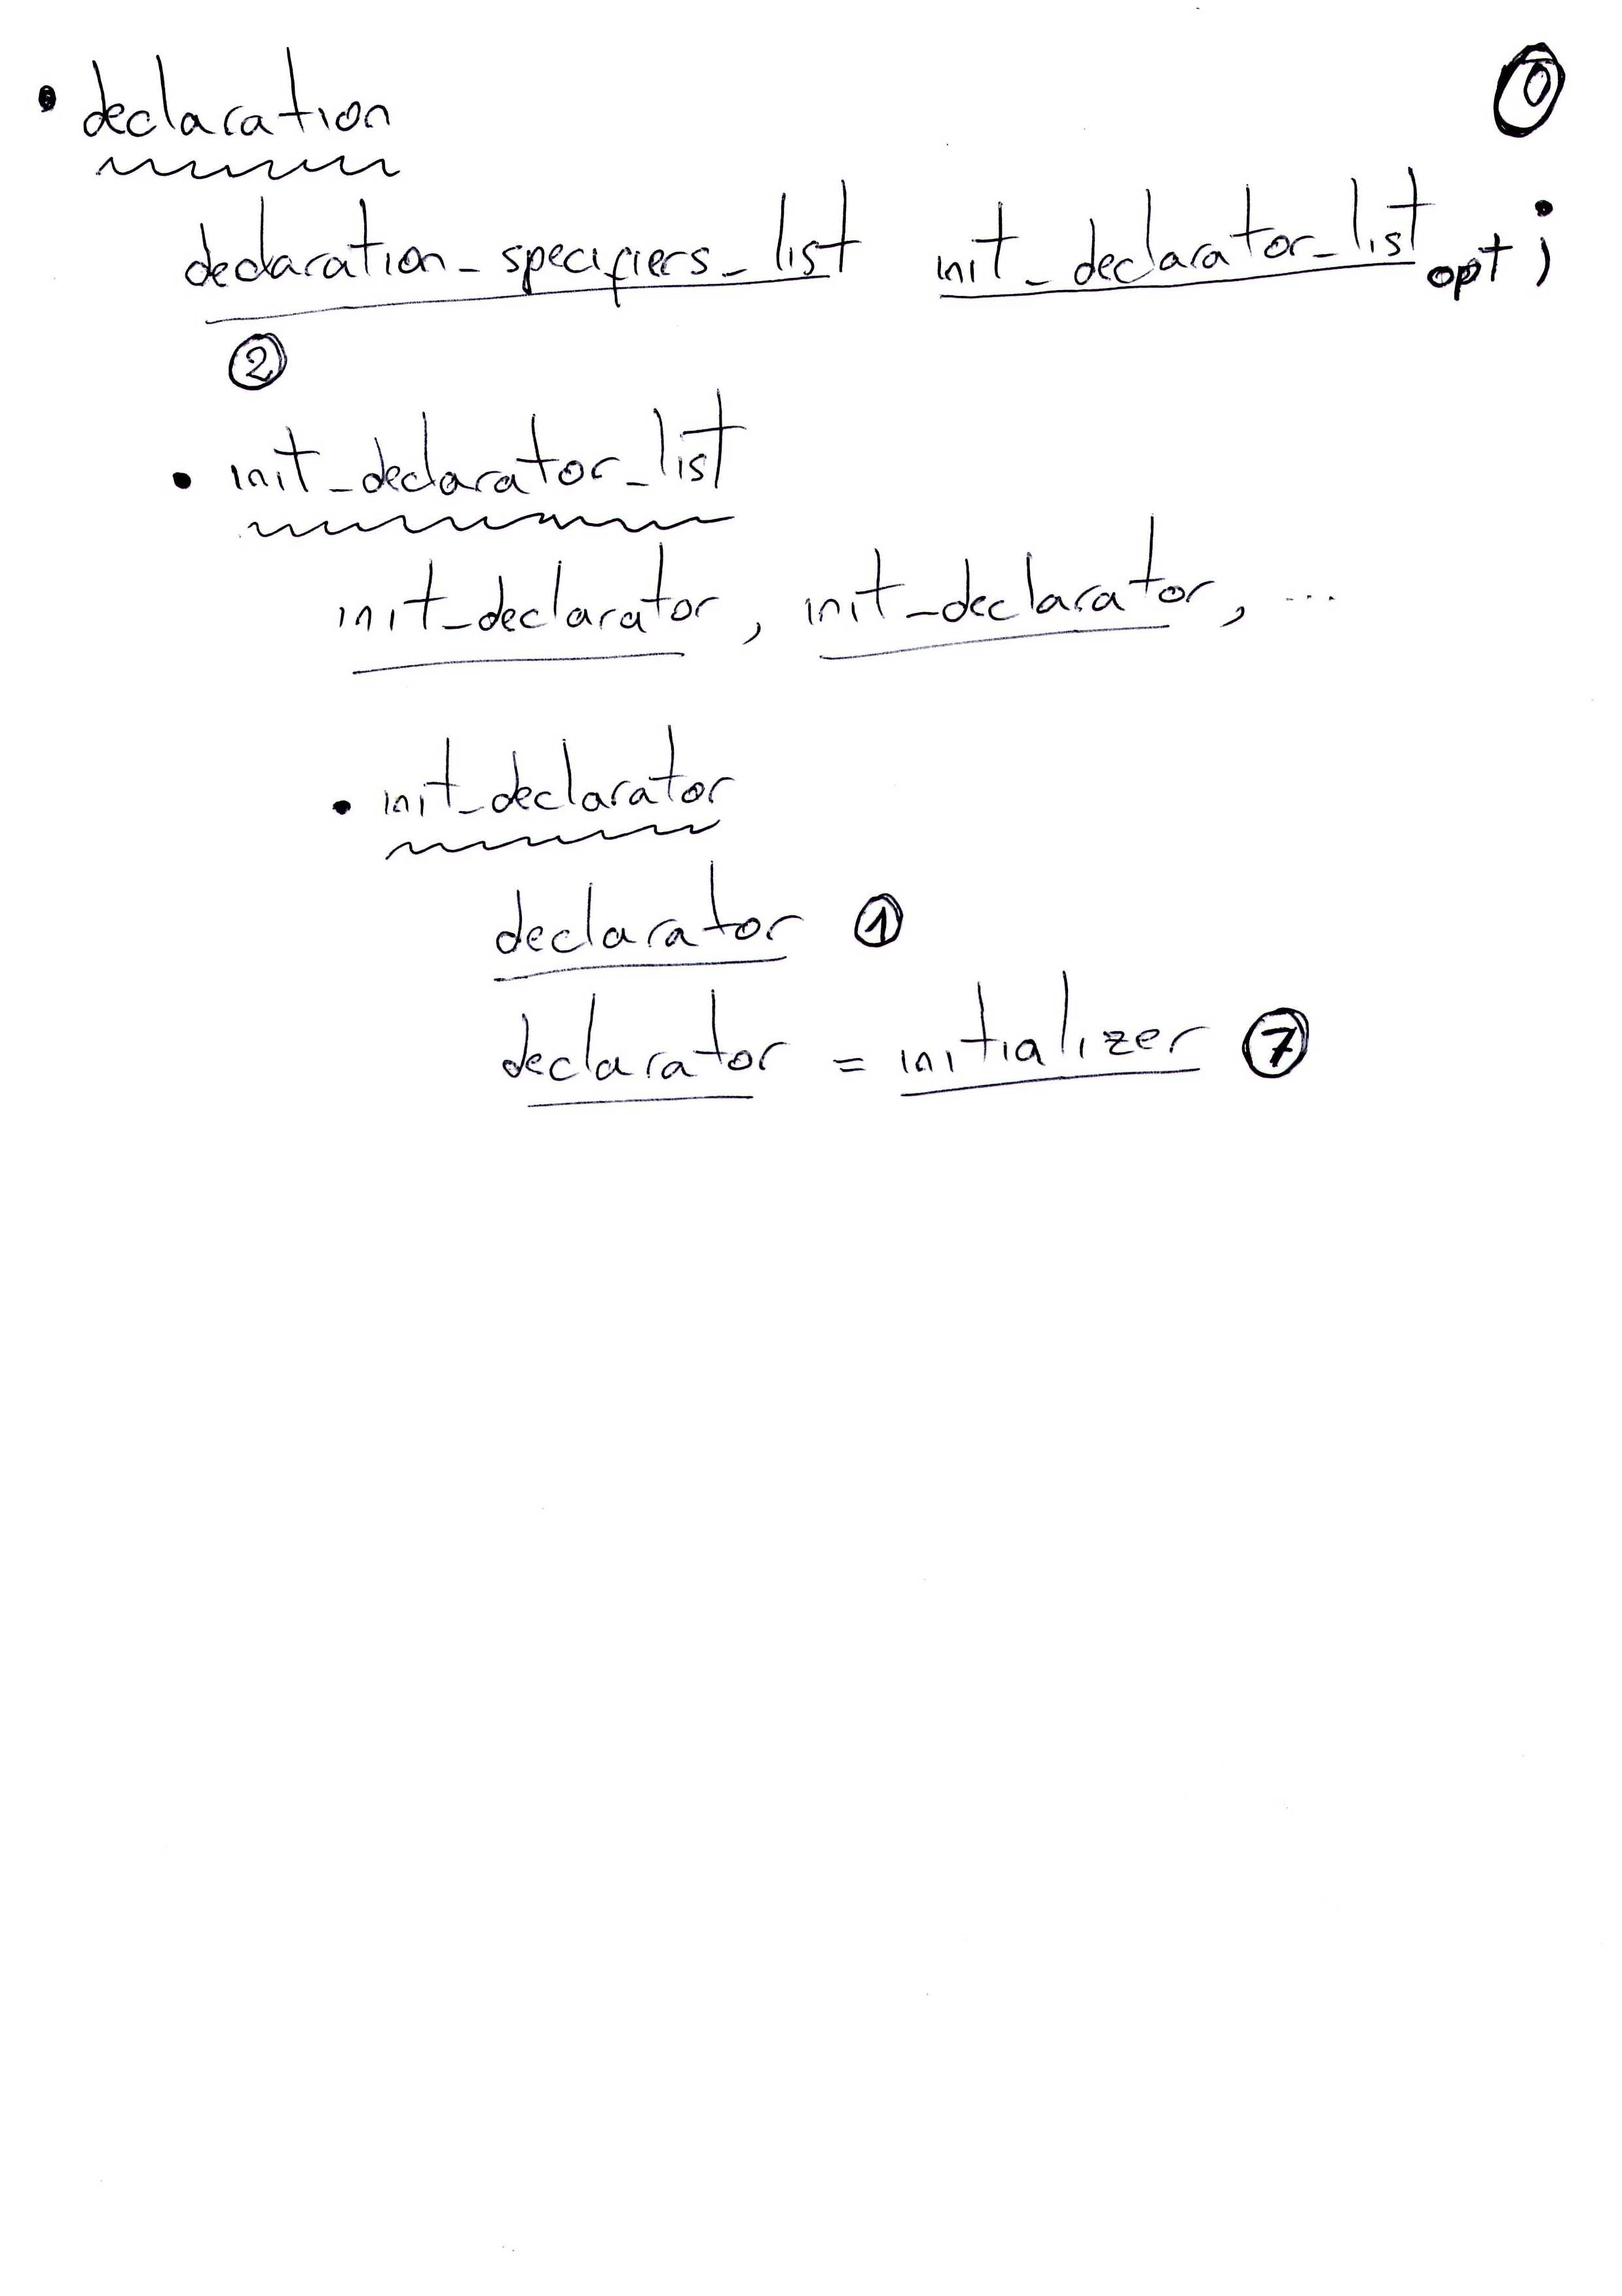 • declaration 0
declaration_specifiers_list init_declarator_list opt ;
2
• init_declarator_list
init_declarator, init_declarator, ...
• init_declarator
declarator 1
declarator = initializer 7